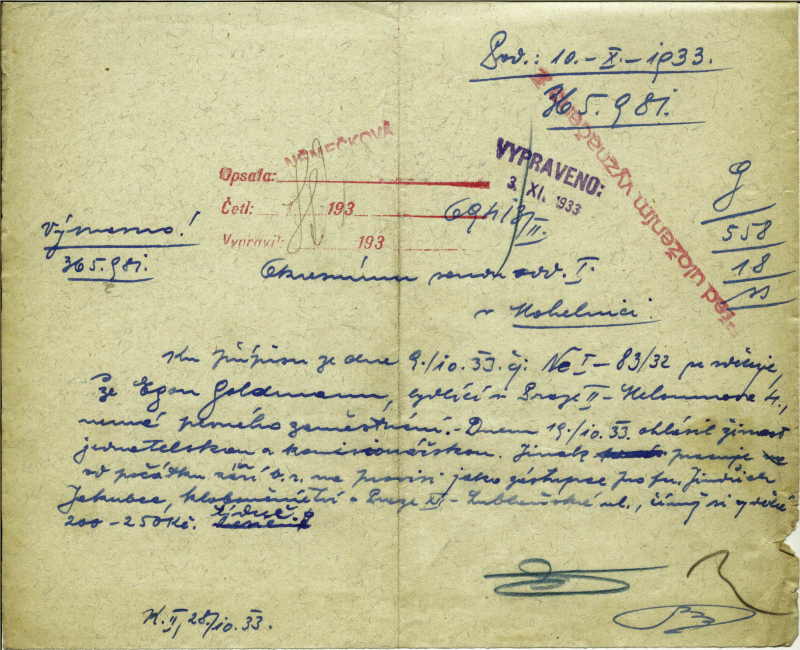 Pod.: 10.-X.-1933.
365.981.
před uložením vyznačený
NĚMEČKOVÁ
Opsala:
Četl: 193
Vypravil: 193
VYPRAVENO:
3. XI. 1933
69418/II.
g
558
18
Výmaz!
365.981.
Okresnímu soudu odd. I.
v Mohelnici.
Ku přípisu ze dne 9./10.33. čj: Nc I - 83/32 se sděluje,
že Egon Goldmann, bydlící v Praze II - Helmova 4.,
nemá pevného zaměstnání.- Dnem 19./10.33. ohlásil živnost
jednatelskou a komisionářskou. Jinak pracuje
od počátku září t.r. na provisi jako zástupce pro fu. Jindřich
Jakubec, kloboučnictví v Praze XII - Lublaňská ul., čímž si vydělá
200 - 250 Kč. týdně
K. II, 28./10.33.